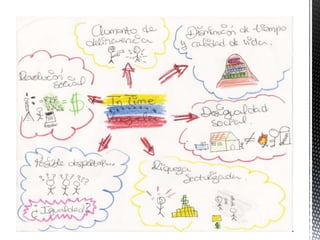 Aumento de
delincuencia
Disminución de tiempo
y calidad de vida.
Revolución
social
$
In Time
Desigualdad
social
Posible despertar...
¿Igualdad?
Riqueza